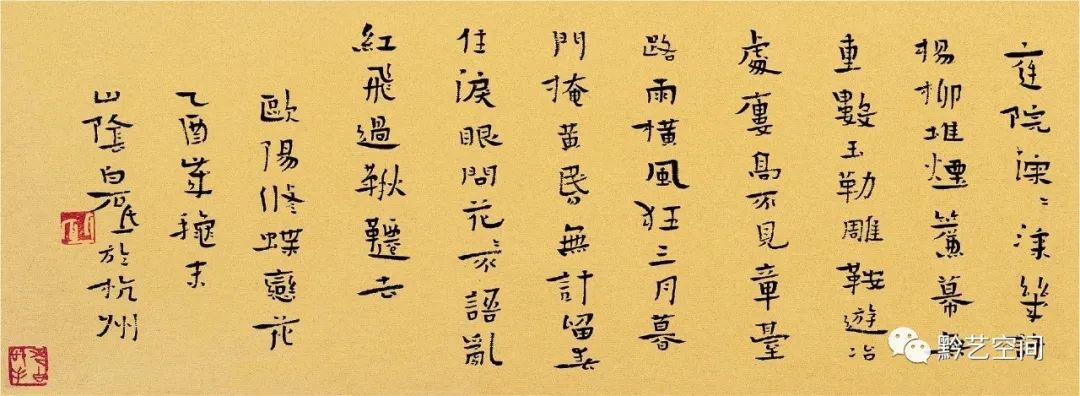 庭院深〻深幾許
楊柳堆煙簾幕無
重數玉勒雕鞍遊冶
處廔高不見章臺
路雨橫風狂三月暮
門掩黃昏無計留春
住淚眼問花〻不語亂
紅飛過鞦韆去
歐陽修蝶戀花
乙酉歲龝末
山陰白砥於杭州
黔艺空间